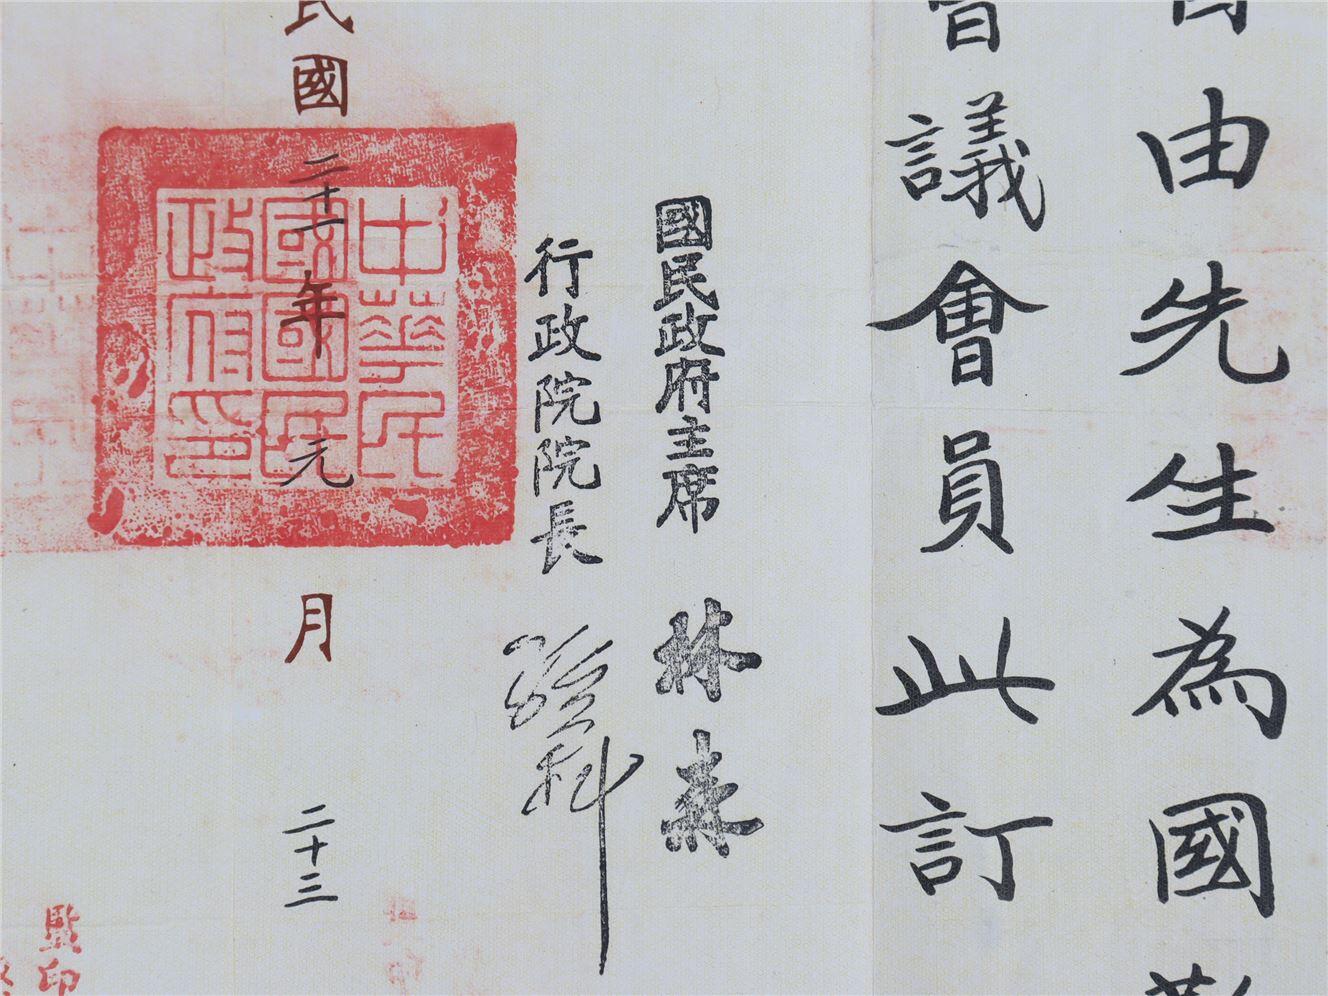 由先生為國
會議會員此訂
國民政府主席 林森
行政院院長 孫科
民國二十一年元月二十三
中華民
國國民
政府印
監印